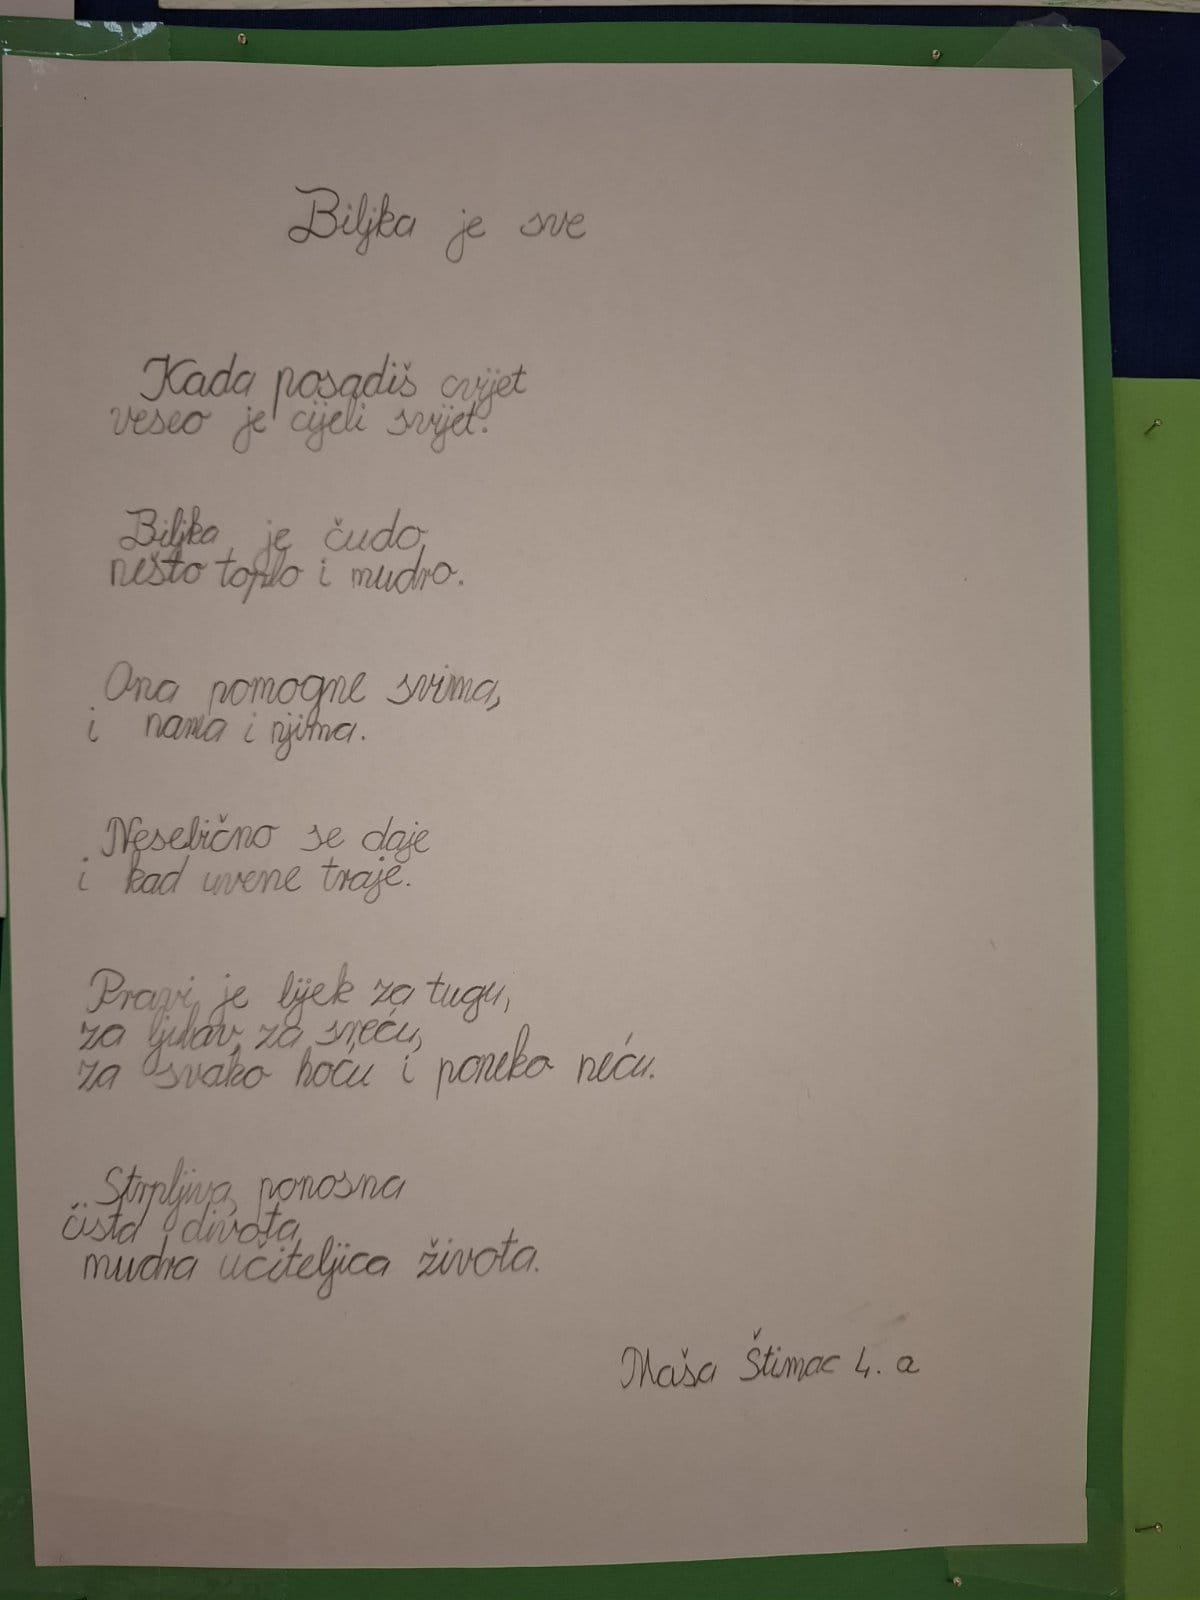 Biljka je sve
Kada posadiš cvijet
veseo je cijeli svijet.
Biljka je čudo,
nešto toplo i mudro.
Ona pomogne svima,
i nama i njima.
Nesebično se daje
i kad uvene traje.
Pravi je lijek za tugu,
za ljubav, za sreću,
za svako hoću i poneko neću.
Strpljiva, ponosna
čista divota,
mudra učiteljica života.
Maša Štimac 4. a